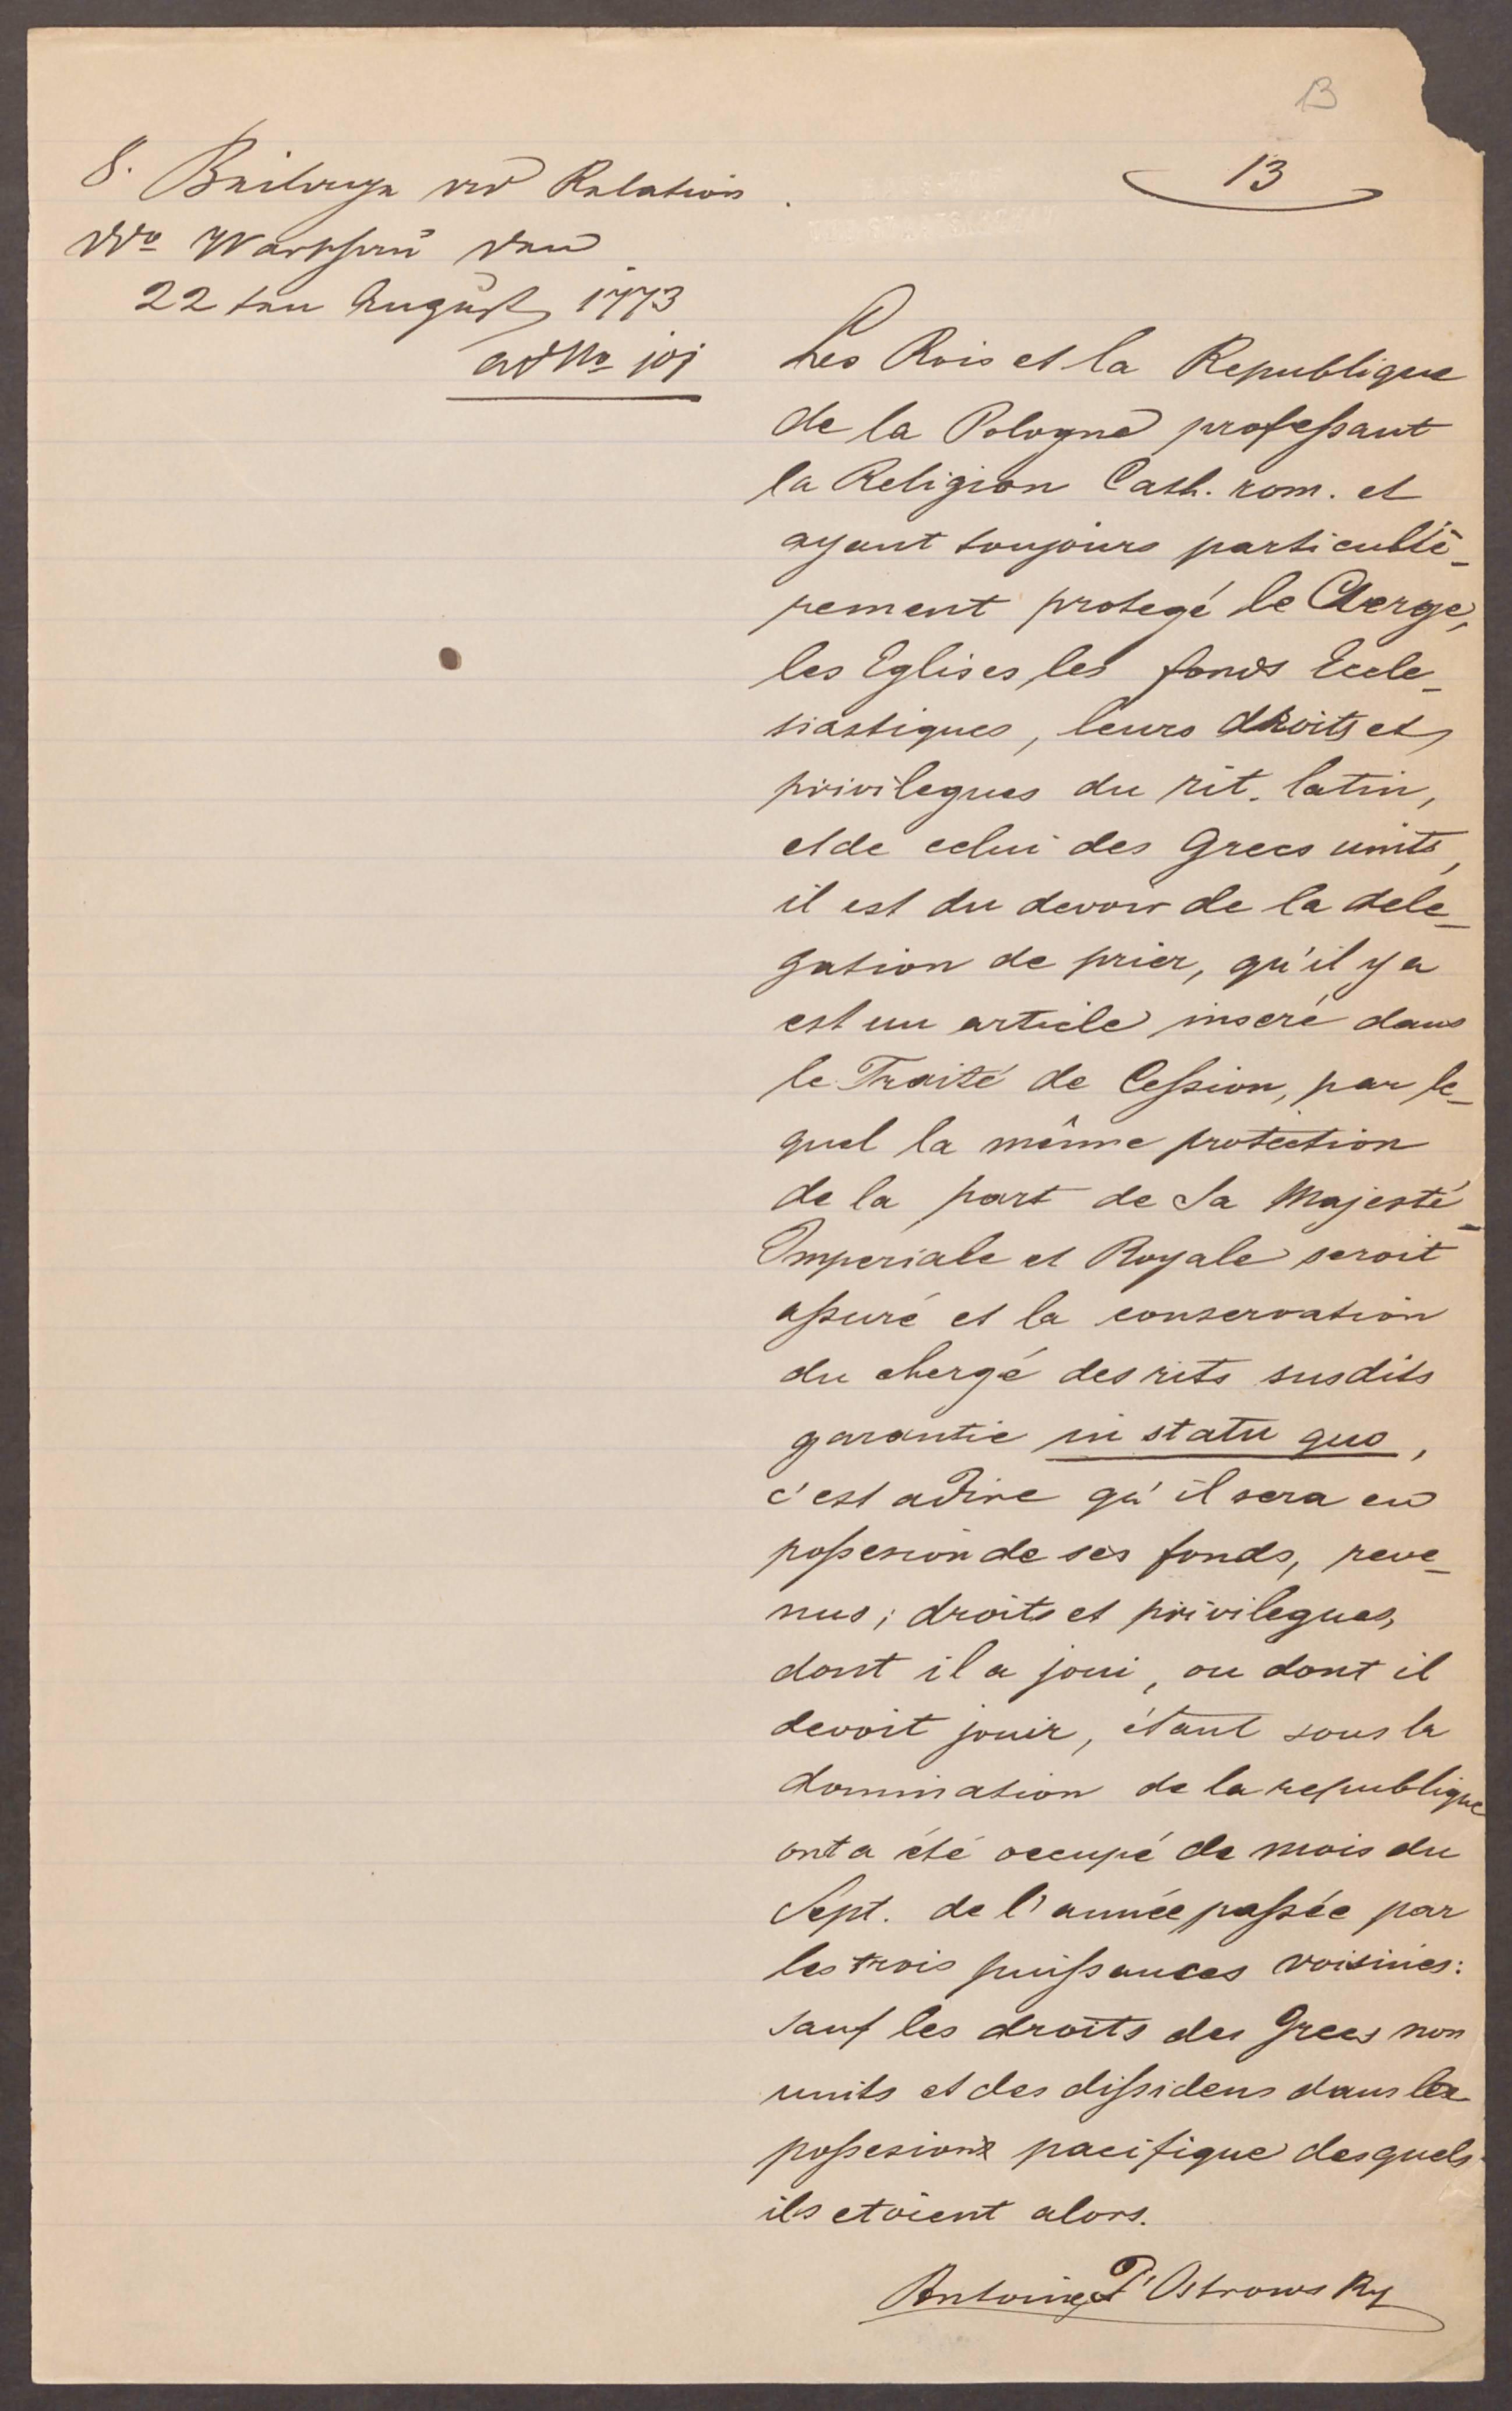 13
13
8. Beilage ad Relation
ddo Warschau den
22ten August 1773
ad No 101
Les Rois et la Republique
de la Pologne professant
la Religion Cath. rom. et
ayant toujours particulliè-
rement protegé le Clerge,
les Eglises les fonds Eccle-
siastiques, leurs droits et
privilegues du rit. latin,
et de celui des Grecs units,
il est du devoir de la dele-
gation de prier, qu'il y a
est un article inseré dans
le Traité de Cession, par le-
quel la même protection
de la part de Sa Majesté
Imperiale et Royale seroit
assuré et la conservation
du chergé des rits susdits
garantie in statu quo,
c'est adire qu'il sera en
possesion de ses fonds, reve-
nus; droits et privilegues,
dont il a joui, ou dont il
devoit jouir, étant sous la
domination de la republique
ont a été occupé de mois du
Sept. de l'année passée par
les trois puissances voisines:
sauf les droits des Grecs non
units et des dissidens dans la
possesion pacifique desquels
ils etoient alors.
Antoine d'Ostrowsky